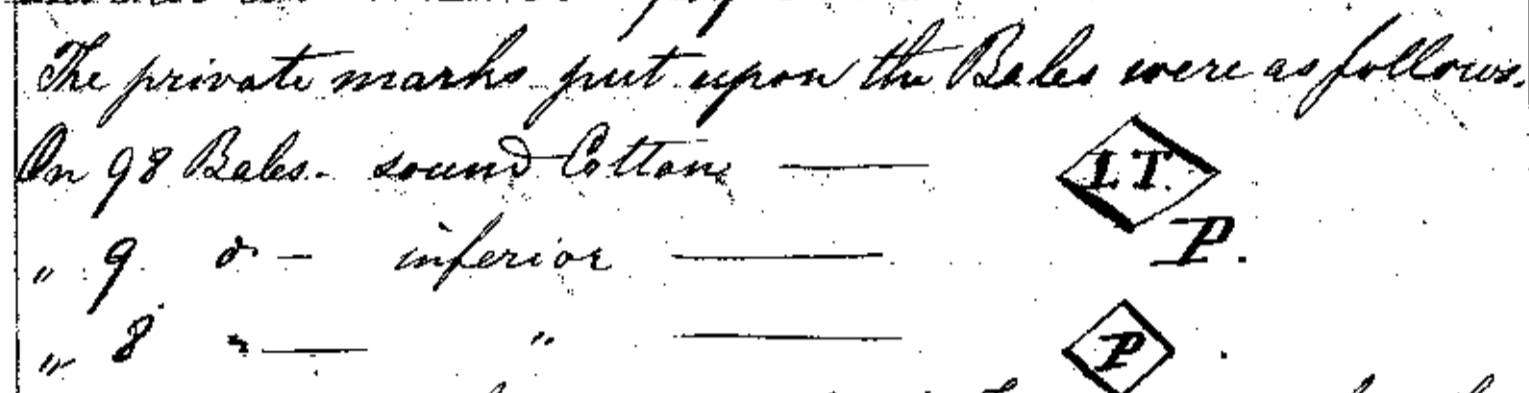 The private marks put upon the Bales were as follows.
On 98 Bales - sound Cotton — I.T.
" 9 do - inferior — P.
" 8 " — " — P